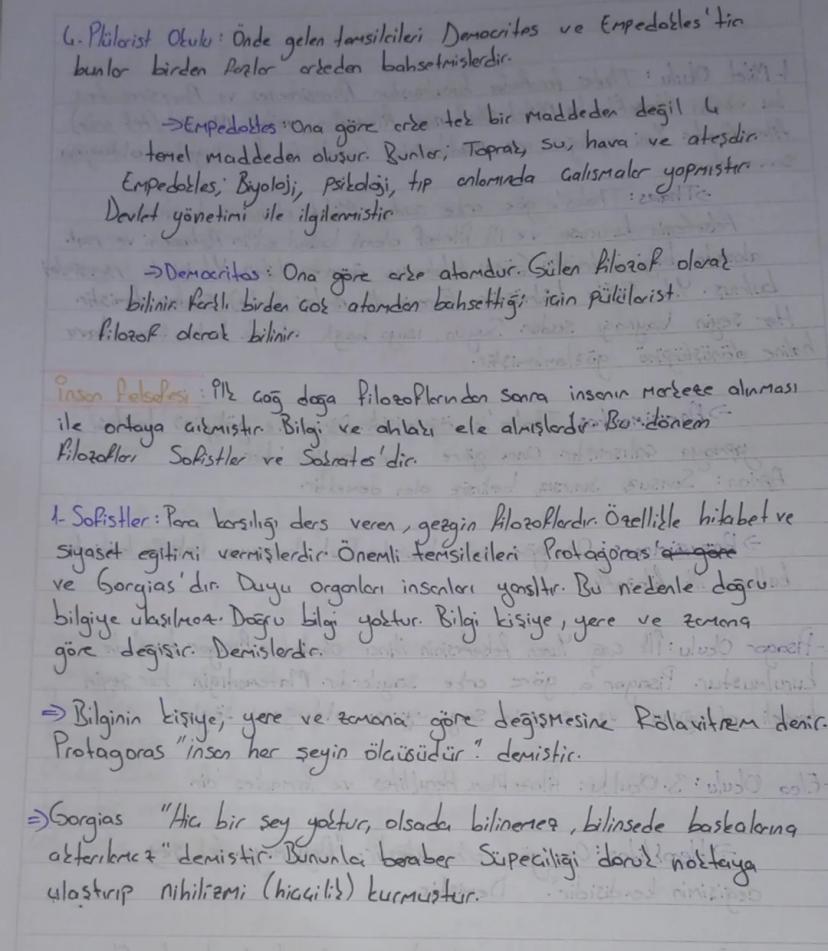 4. Plülarist Okulu: Önde gelen temsilcileri Democritos ve Empedokles'tir
bunlar birden fazlar arkeden bahsetmişlerdir.
→Empedokles: Ona göre arke tek bir maddeden değil 4
temel maddeden oluşur. Bunlar; Toprak, su, hava ve ateşdir.
Empedokles; Biyoloji, psikoloji, tıp anlamında Çalışmalar yapmıştır.
Devlet yönetimi ile ilgilenmiştir
→Democritos: Ona göre arke atomdur. Gülen filozof olarak
bilinir. Farklı birden çok atomdan bahsettiği için pülülarist
filozof olarak bilinir.
İnsan Felsefesi: İlk çağ doğa filozoflarından sonra insanın merkeze alınması
ile ortaya çıkmıştır. Bilgi ve ahlakı ele almışlardır. Bu dönem
filozofları Sofistler ve Sokrates'dir.
1- Sofistler: Para karşılığı ders veren, gezgin filozoflardır. Özellikle hitabet ve
siyaset egitimi vermişlerdir. Önemli temsilcileri Protagoras'a göre
ve Gorgias'dır. Duyu organları insanları yanıltır. Bu nedenle doğru
bilgiye ulaşılmaz. Doğru bilgi yoktur. Bilgi kişiye, yere ve zamana
göre değişir. Demişlerdir.
⇒ Bilginin kişiye, yere ve zamana göre değişmesine Rölavitizm denir.
Protagoras "insan her şeyin ölçüsüdür". demistir.
⇒Gorgias "Hiç bir şey yoktur, olsada bilinemez, bilinsede baskalarına
akterılamaz" demiştir. Bununla beraber Süpeciliği doruk noktaya
ulaştırıp nihilizmi (hiççilik) kurmuştur.